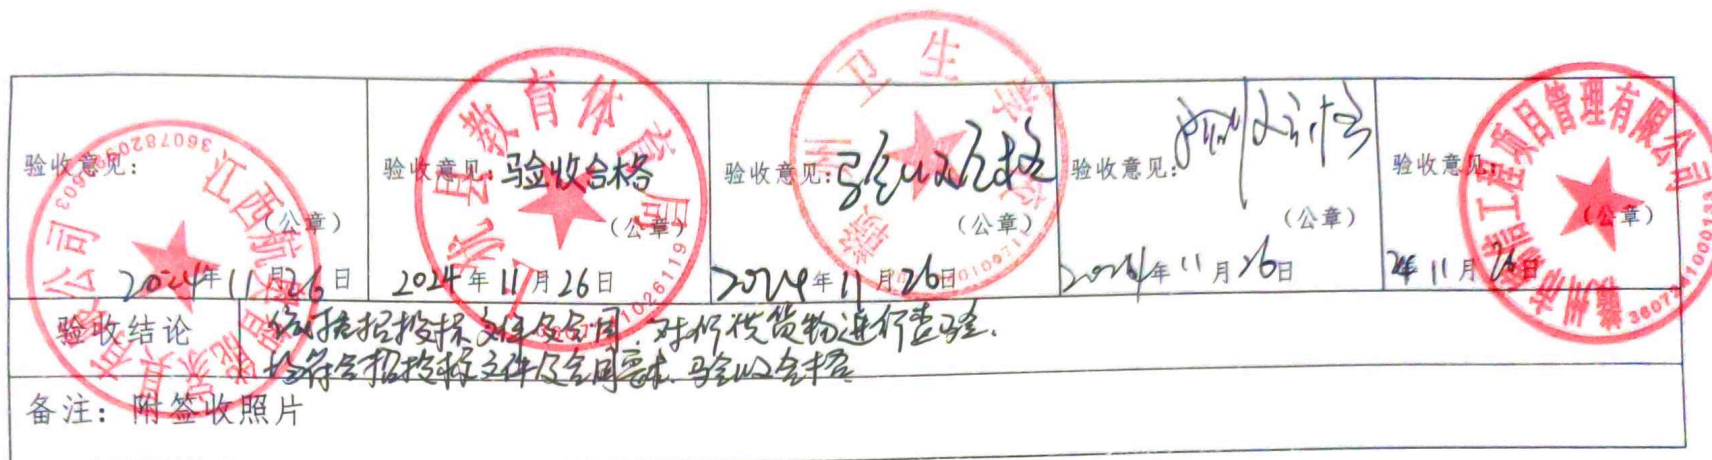 验收意见：
（公章）
2024年11月26日
验收意见：验收合格
（公章）
2024年11月26日
验收意见：验收合格
（公章）
2024年11月26日
验收意见：
（公章）
2024年11月26日
验收意见：
（公章）
24年11月26日
验收结论
招投标文件及合同，对所供货物进行查验.
均符合招投标文件及合同要求.验收合格
备注：附签收照片
教育体育局
卫生学校
工程项目管理有限公司